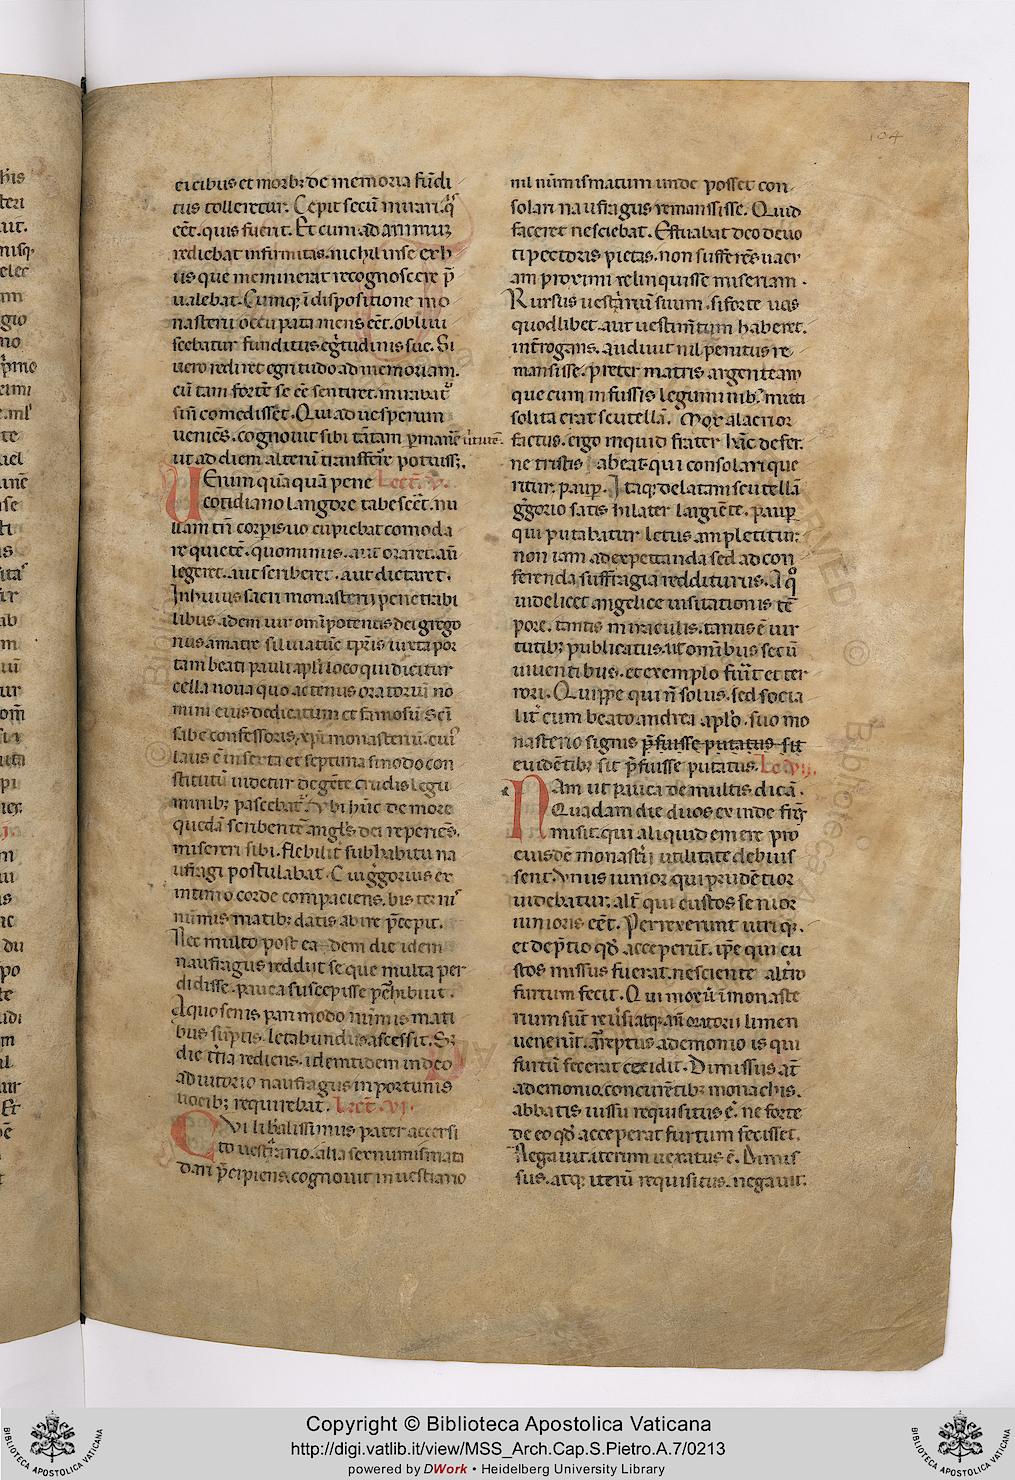 104
ei cibus et morbꝫ de memoria fūdi
tus tolleretur. Cepit secū mirari. qͥs
eēt. quis fuerit. Et cum ad animuꝫ
rediebat infirmitas. nichil in se ex h
us que meminerat recognoscere p̄
ualebat. Cumqꝫ ī dispositione mo
nasterii occupata mens eēt. obliui
scebatur funditus egͥtudinis sue. Si
uero rediret egritudo ad memoriam.
cū tam forte᷒ se eē sentiret. mirabat᷑
si n̄ comedisset. Qui ad uesperum
ueniēs. cognouit sibi tātam ꝑmanē
ut ad diem alterū transferre potuiss;.
Uerum quāquā pene Lect̄. v.
cotidiano langore tabesceēt. nu
llam tn̄ corpris uo cupiebat comoda
re quietē. quominus. aut oraret. aū
legeret. aut scriberet. aut dictaret.
In huius sacri monasterii penetrabi
libus. idem uir om̄ipotentis dei grego
rius a matre siluia tūc tp̄ris iuxta por
tam beati pauli apl̄i loco qui dicitur
cella noua quo actenus oratoriū no
mini eius dedicatum et famosū scī
sabe confessoris xp̄i monasteriū. cui᷒
laus ē inserta et septima sinodo con
stitutū uidetur degēte crudis legu
minibꝫ pascebat᷑. Vbi hūc de more
quedā scribentē angl̄s dei reperiēs.
misereri sibi. flebilit᷑ sub habitu na
ufragi postulabat. Cui gͣgorius ex
intimo corde compaciens. bis ter ni᷒
nūmis matibꝫ datis abire p̄cepit.
Nec multo post eadem die idem
naufragus reddiit se que multa per
didisse. pauca suscepisse perhibuit.
A quo senis pari modo nūmis mati
bus sūptis. letabundus ascessit. Sꝫ
die tͥtia rediens. idemtidem in deo
ad iutorio naufragus inportunis
uocibꝫ requirebat. Lect̄. vi.
Cui liberalissimus pater accersi
to uestͥario. alia sex numismata
dari p̄cipiens. cognouit in uestiario
nil nūmismatum unde posset con
solari naufragus remansisse. Quid
faceret nesciebat. Estuabat deo deuo
ti pectoris pietas. non sufferēs uacu
am proximi relinquisse miseriam.
Rursus uestͥariū suum. si forte uas
quodlibet. aut uestimtum haberet.
int᷑rogans. audiuit nil penitus re
mansisse. preter matris argenteam
que cum infussis leguminibꝫ mitti
solita erat scutellā. Mox alacrior
factus. ergo inquid frater hāc defer.
ne tristis abeat qui consolari que
ritur. paupꝫ. Itaqꝫ delatam scutellā
gͣgorio satis hilater largiēte. paupꝫ
qui putabatur letus ampletitur:
non iam ad expettanda sed ad con
ferenda suffragia redditurus. A qͦ
uidelicet angelice uisitationis tē
pore. tantis miraculis. tantis ē uir
tutibꝫ publicatus. ut omībus secū
uiuentibus. et exemplo fuīt et ter
rori. Quippe qui n̄ solus. sed socia
lit᷑ cum beato andrea apl̄o. suo mo
nasterio signis p̄fuisse putatus sit
euidētibꝫ sit p̄fuisse putatus. Lc. vij.
Nam ut pauca de multis dicā.
Quadam die duos ex inde frīs
misit. qui aliquid emere pro
eiusdē monasterii utilitate debuis
sent. Vnus iunior qui prudētior
uidebatur. alt᷑ qui custos senior
iunioris eēt. Perrexerunt utriqꝫ.
et de p̄tio qd̄ acceperūt. ip̄e qui cu
stos missus fuerat. nesciente altͥo
furtum fecit. Qui mox ū ī monaste
rium sūt reūsi atqꝫ añ oratorii limen
uenerūt. arreptus a demonio is qui
furtū fecerat cecidit. Dimissus aūt
a demonio. concurrētibꝫ monachis.
abbatis iussu requisitus ē. ne forte
de eo qd̄ acceperat furtum fecisset.
Negauit. iterum uexatus ē. Dimis
sus. atqꝫ iterū requisitus. negauit.
Copyright © Biblioteca Apostolica Vaticana
http://digi.vatlib.it/view/MSS_Arch.Cap.S.Pietro.A.7/0213
powered by DWork • Heidelberg University Library
BIBLIOTECA APOSTOLICA VATICANA
BIBLIOTECA APOSTOLICA VATICANA